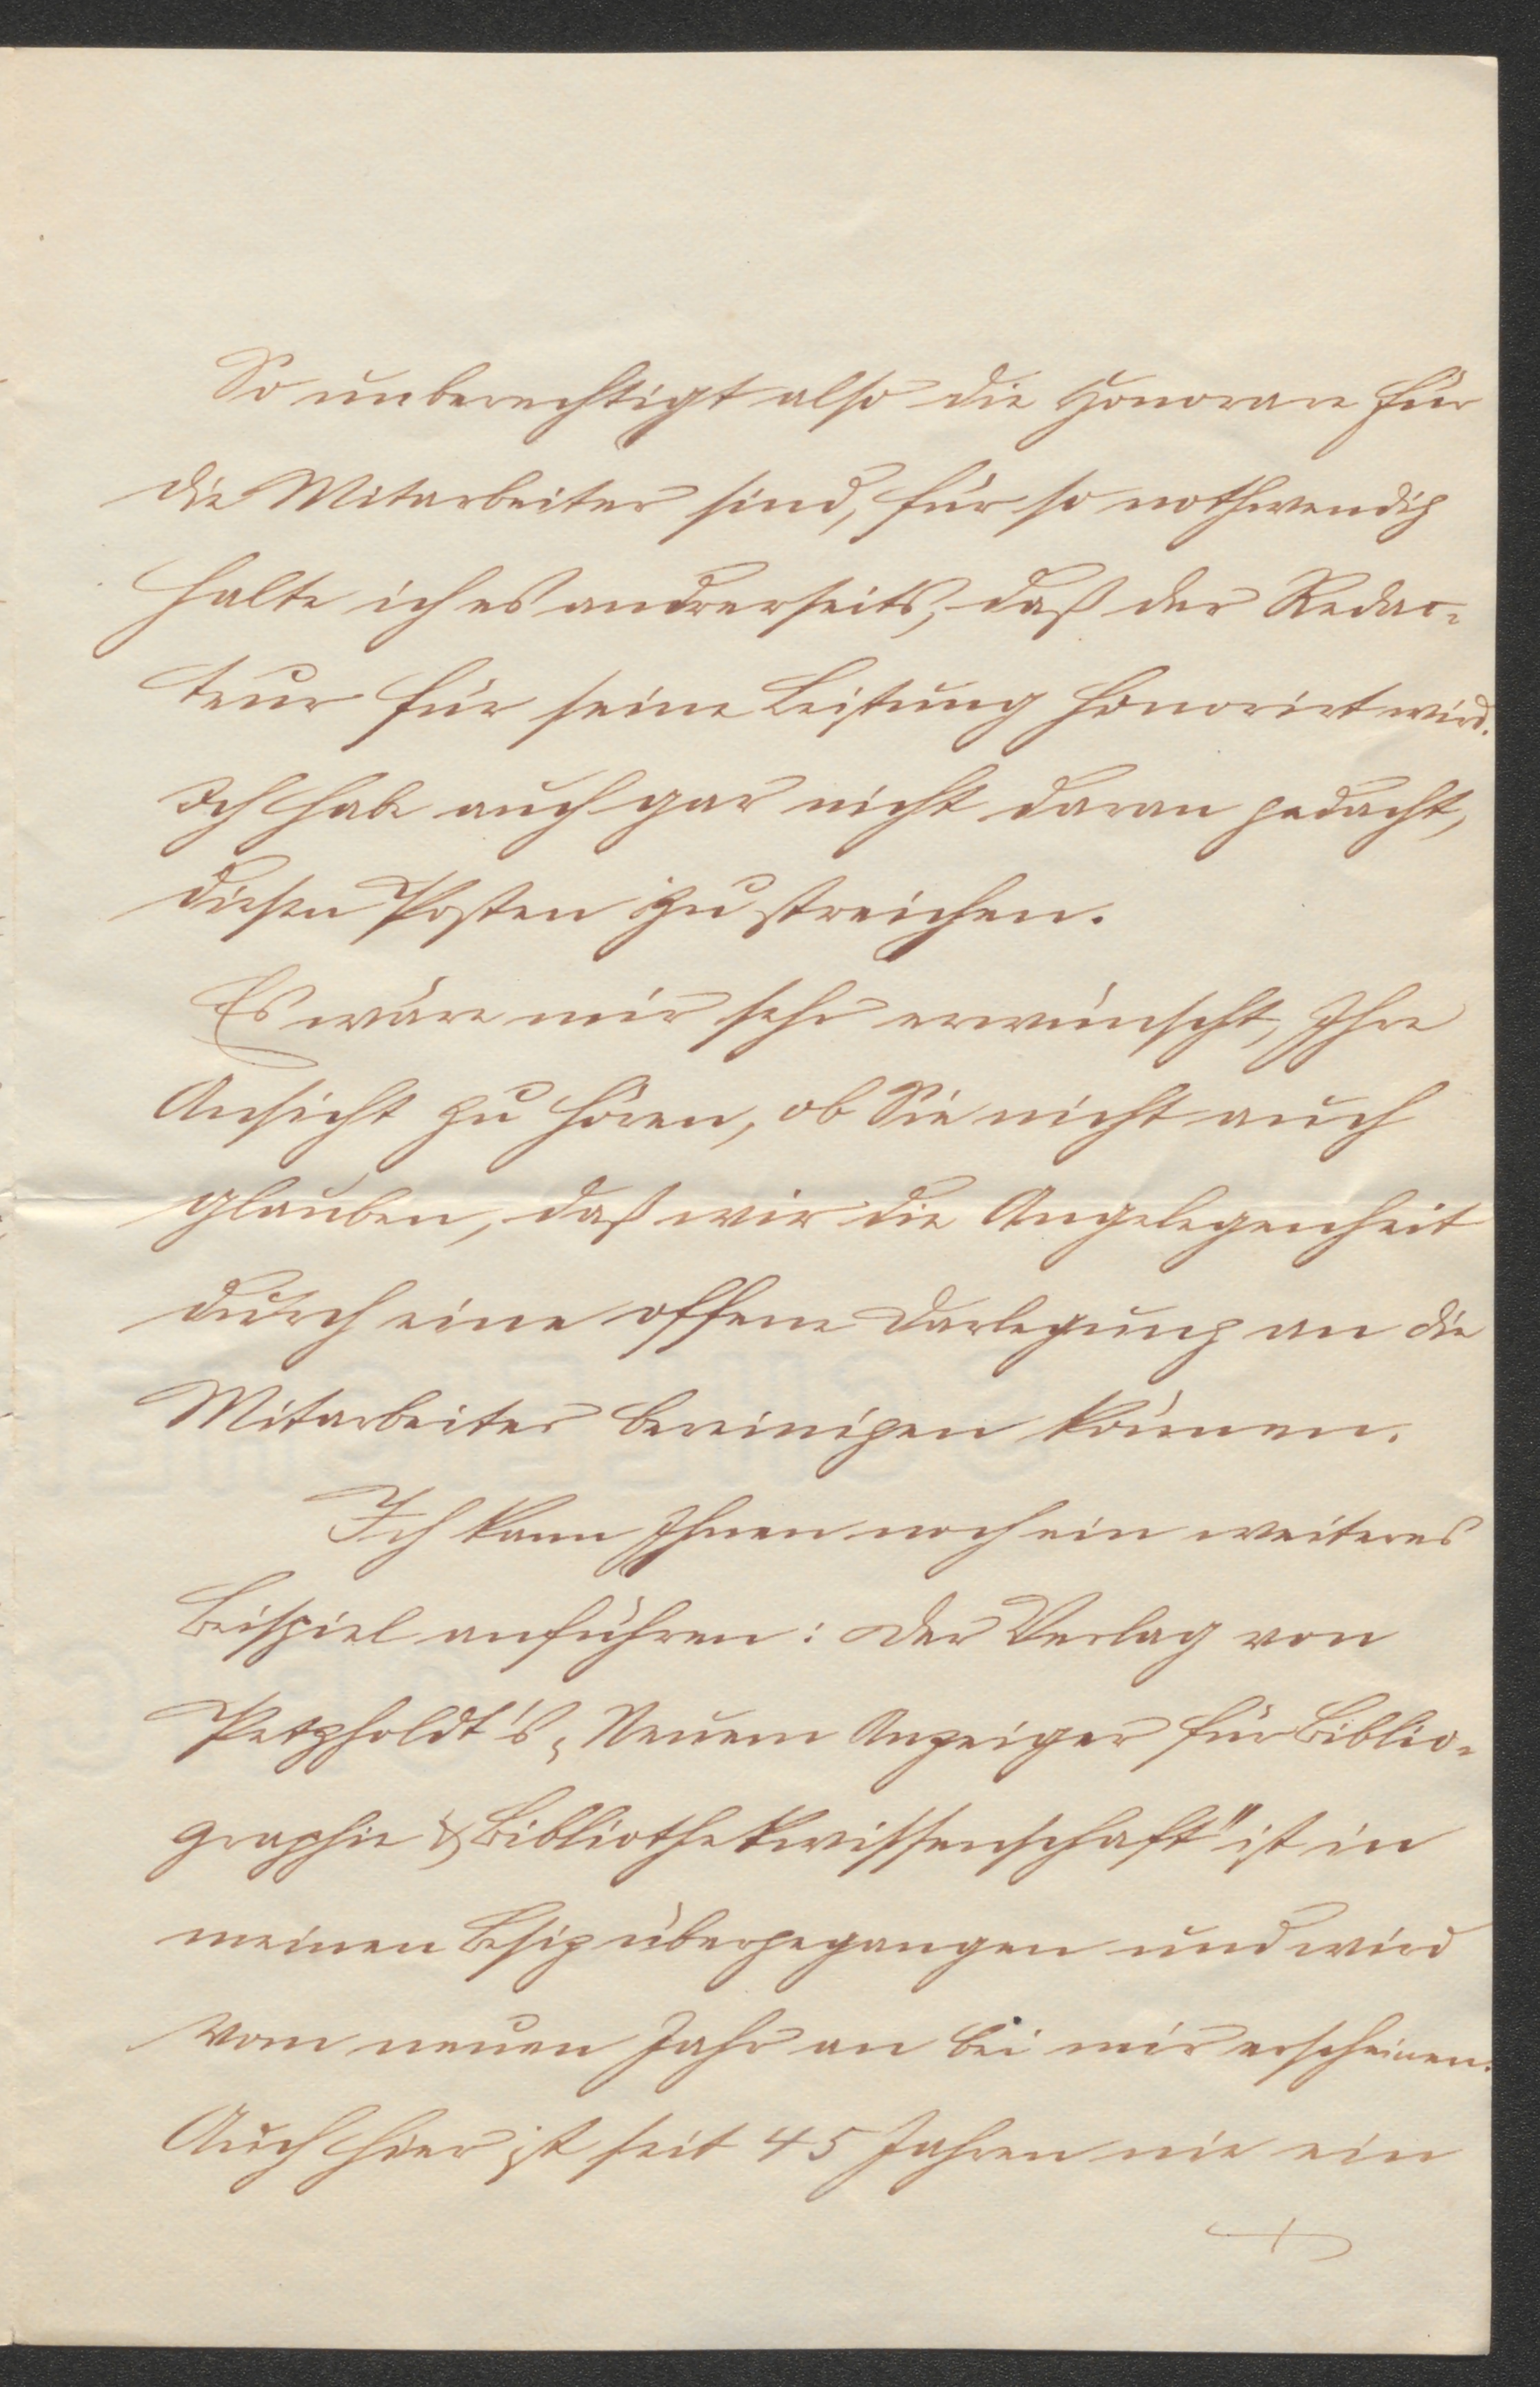 So unberechtigt also die Honorare für
die Mitarbeiter sind, für so nothwendig
halte ich es andrerseits, daß der Redac-
teur für seine Leistung honorirt wird.
Ich habe auch gar nicht daran gedacht,
diesen Posten zu streichen.
Es wäre mir sehr erwünscht, Ihre
Ansicht zu hören, ob Sie nicht auch
glauben, daß wir die Angelegenheit
durch eine offene Darlegung an die
Mitarbeiter bereinigen können.
Ich kann Ihnen noch ein weiteres
Beispiel anführen: Der Verlag von
Petzholdt's „Neuem Anzeiger für Biblio-
graphie & Bibliothekwissenschaft" ist in
meinen Besitz übergegangen und wird
vom neuen Jahr an bei mir erscheinen.
Auch hier ist seit 45 Jahren nie ein